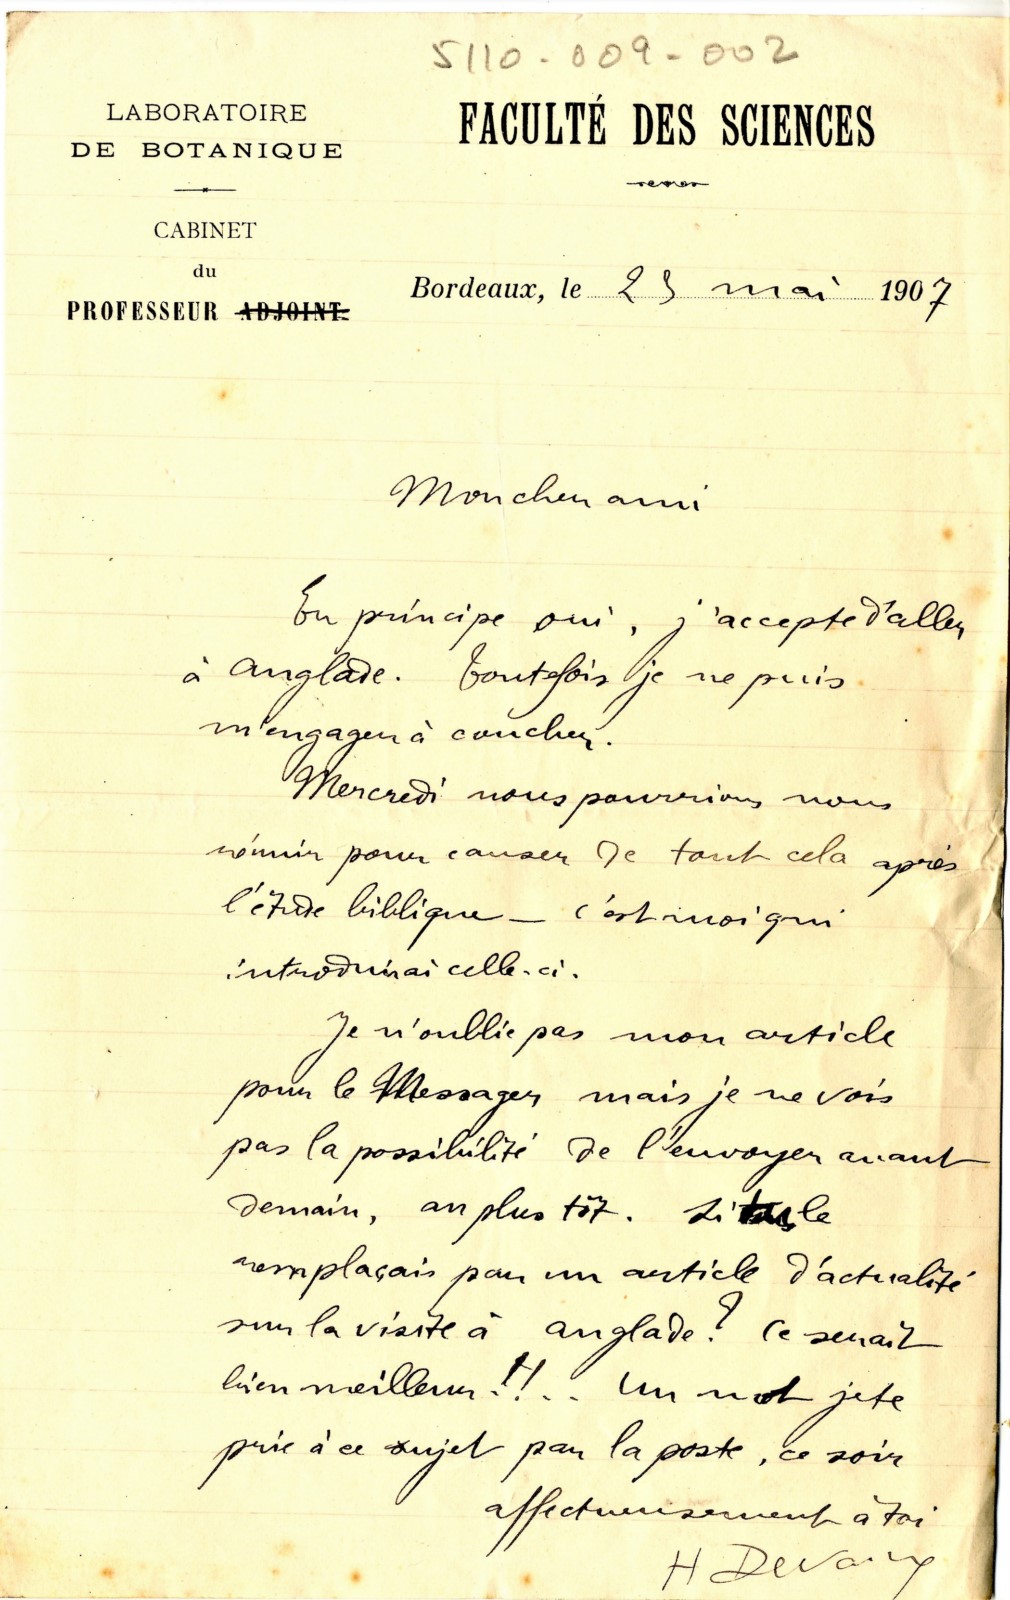 5110-009-002
LABORATOIRE
DE BOTANIQUE
CABINET
du
PROFESSEUR ADJOINT.
FACULTÉ DES SCIENCES
Bordeaux, le 23 mai 1907
Mon cher ami
En principe oui, j'accepte d'aller
à anglade. Toutefois je ne puis
m'engager à coucher.
Mercredi nous pourrions nous
réunir pour causer de tout cela après
l'étude biblique — c'est moi qui
introduirai celle-ci.
Je n'oublie pas mon article
pour le Messager mais je ne vois
pas la possibilité de l'envoyer avant
demain, au plus tôt. Si tu le
remplaçais par un article d'actualité
sur la visite à anglade? Ce serait
bien meilleur!!.. Un mot je te
prie à ce sujet par la poste, ce soir
affectueusement à toi
H Devaux